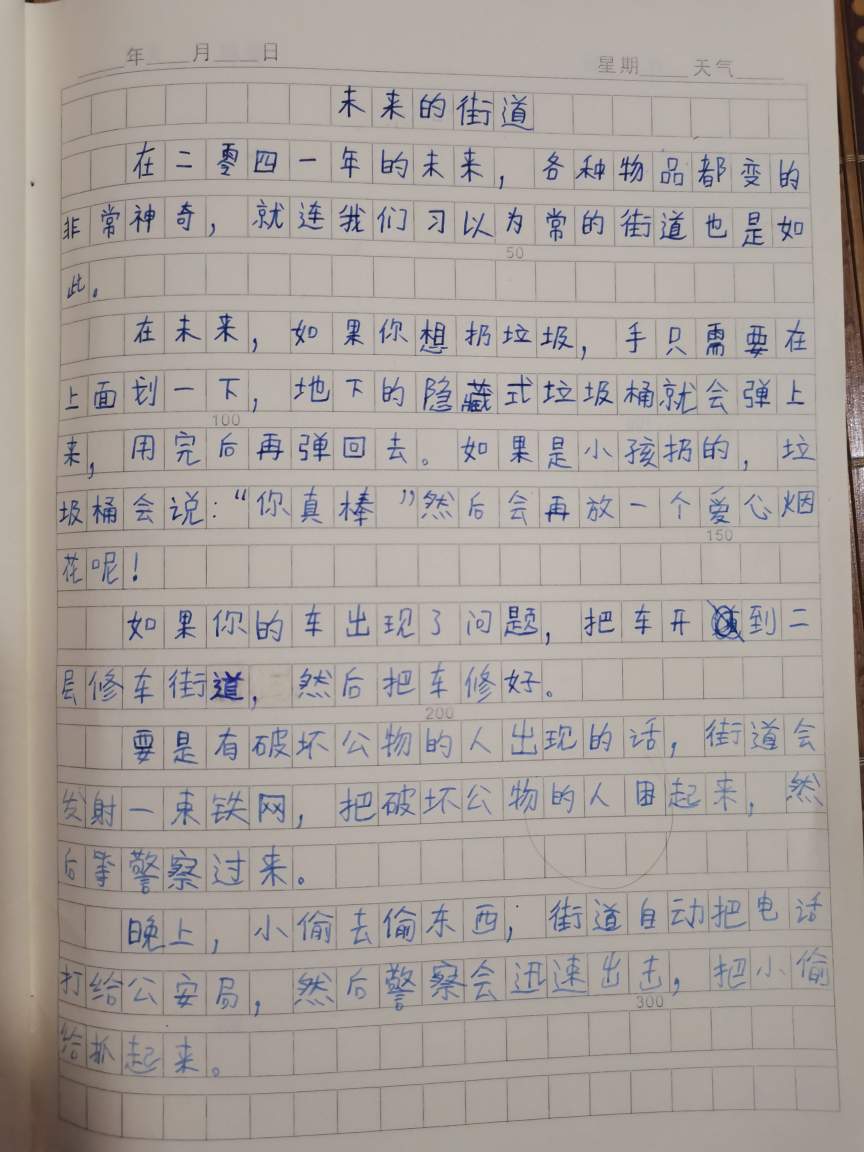 年 月 日 星期 天气
未来的街道
在二零四一年的未来，各种物品都变的
非常神奇，就连我们习以为常的街道也是如
50
此。
在未来，如果你想扔垃圾，手只需要在
上面划一下，地下的隐藏式垃圾桶就会弹上
100
来，用完后再弹回去。如果是小孩扔的，垃
圾桶会说：“你真棒”然后会再放一个爱心烟
150
花呢！
如果你的车出现了问题，把车开到二
层修车街道，然后把车修好。
200
要是有破坏公物的人出现的话，街道会
发射一束铁网，把破坏公物的人困起来，然
后等警察过来。
晚上，小偷去偷东西；街道自动把电话
打给公安局，然后警察会迅速出击，把小偷
300
给抓起来。